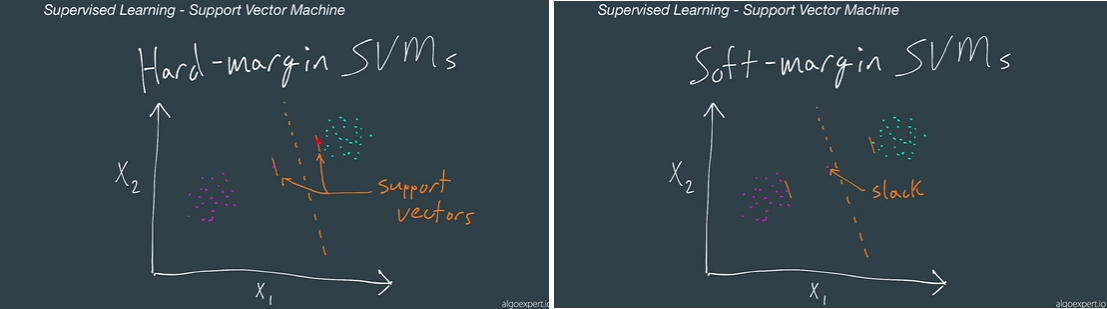 Supervised Learning - Support Vector Machine
Hard-margin SVMs
X2
support
vectors
X1
algoexpert.io
Supervised Learning - Support Vector Machine
Soft-margin SVMs
X2
slack
X1
algoexpert.io